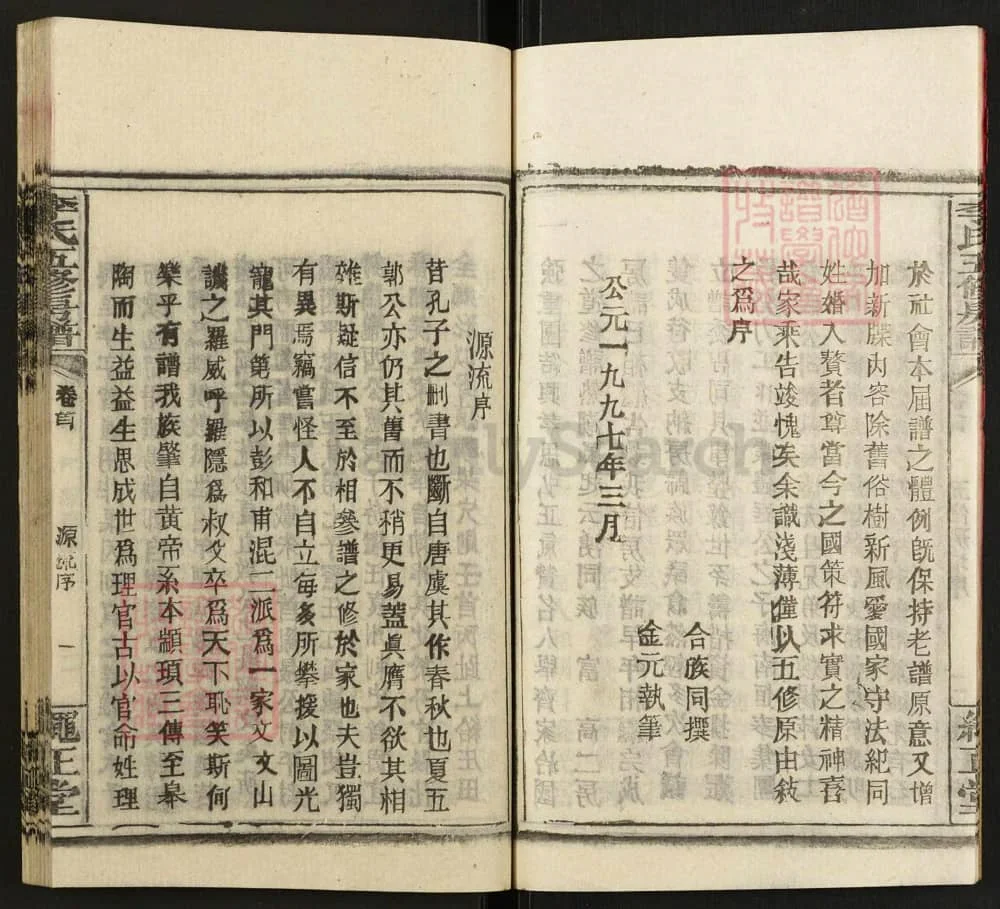 於社會本屆譜之體例既保持老譜原意又增
加新牒內容除舊俗樹新風愛國家守法紀同
姓婚入贅者尊當今之國策符求實之精神喜
哉家乘告竣愧矣余識淺薄僅以五修原由敍
之為序
公元一九九七年三月
合族同撰
金元執筆
源流序
昔孔子之刪書也斷自唐虞其作春秋也夏五
郭公亦仍其舊而不稍更易蓋眞贋不欲其相
雜斯疑信不至於相參譜之修於家也夫豈獨
有異焉竊嘗怪人不自立每多所攀援以圖光
寵其門第所以彭和甫混二派為一家文文山
譏之羅威呼羅隱爲叔父卒爲天下恥笑斯何
樂乎有譜我族肇自黃帝系本顓頊三傳至皋
陶而生益益生思成世爲理官古以官命姓理
李氏五修房譜
卷首
源流序
一
繩正堂
FamilySearch